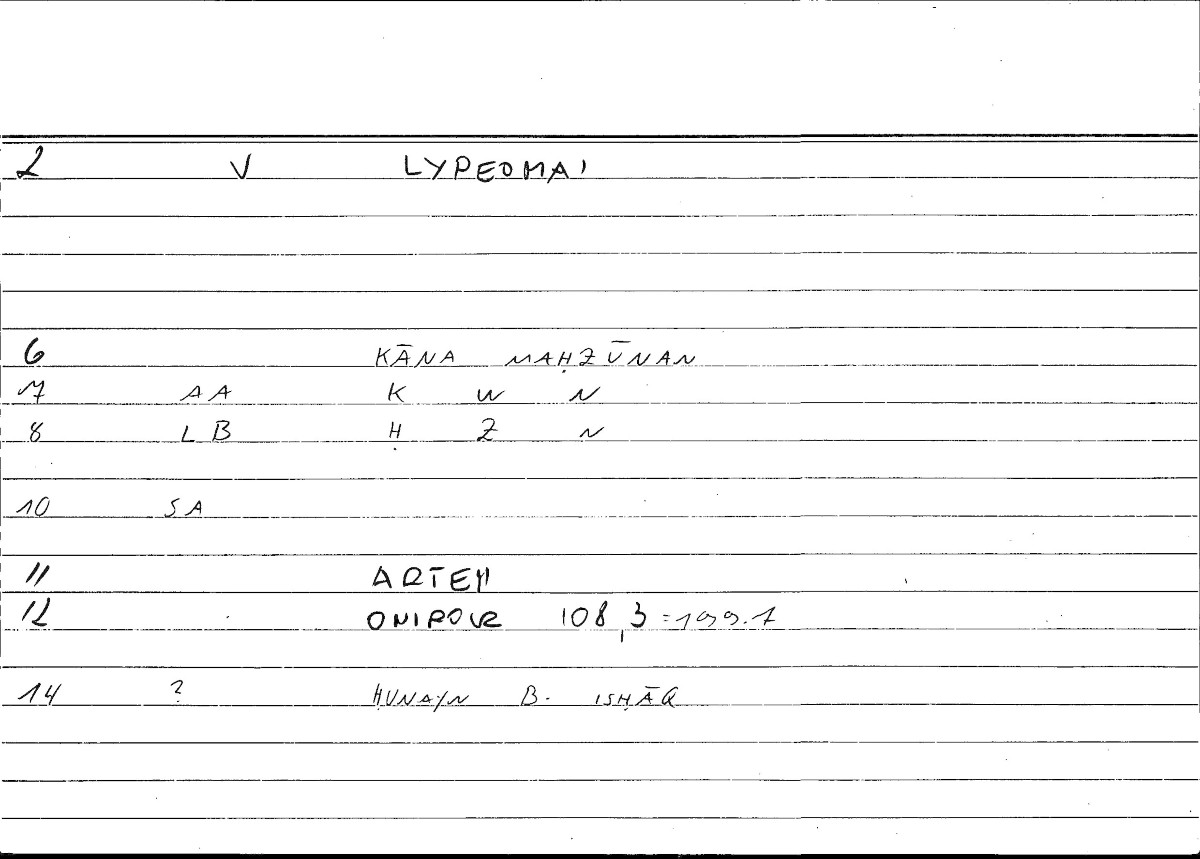 2 V LYPEOMAI
6 KĀNA MAḤZŪNAN
7 AA K W N
8 LB Ḥ Z N
10 SA
11 ARTEM
12 ONIROCR 108,3 =199.7
14 ? ḤUNAYN B. ISḤĀQ